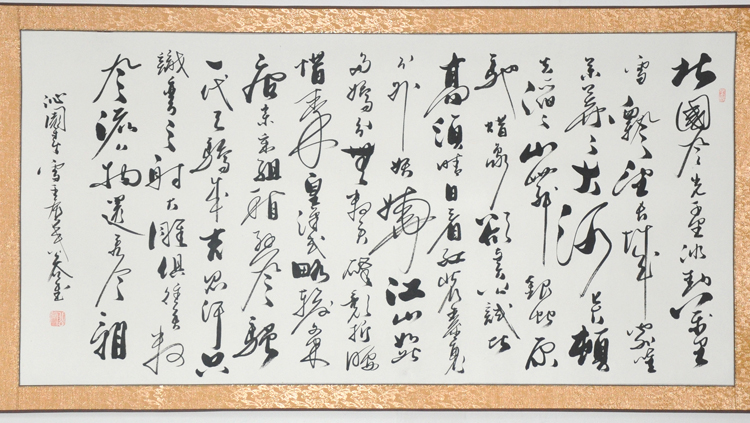 北國风光千里冰封万里
雪飄望长城内外惟
余莽莽大河上下頓
失滔滔山舞銀蛇原
馳蜡象欲與天公試比
高須晴日看红装素裹
分外妖娆江山如此
多嬌引無數英雄競折腰
惜秦皇漢武略输文采
唐宗宋祖稍逊风骚
一代天驕成吉思汗只
識弯弓射大雕俱往矣数
风流人物還看今朝
沁園春雪毛主席